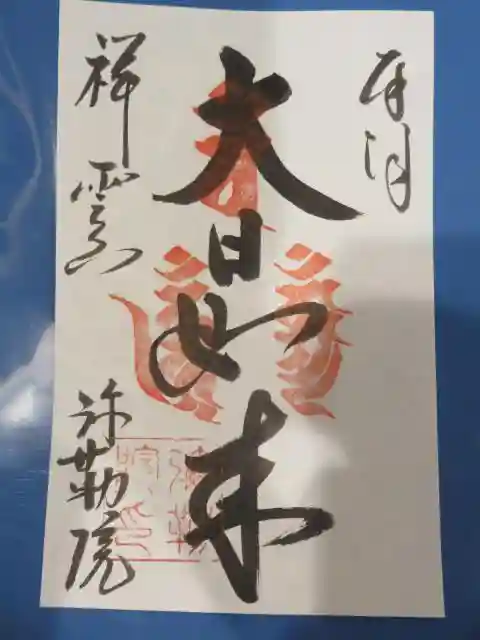 拝
大日如来
祥雲
弥勒院